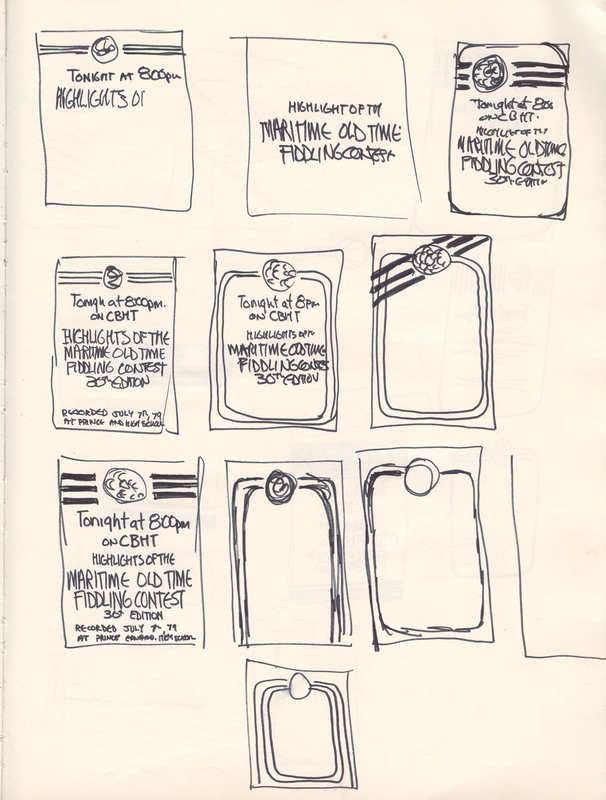 TONIGHT AT 8:00pm
HIGHLIGHTS OF
HIGHLIGHT OF THE
MARITIME OLD TIME
FIDDLING CONTEST
Tonight at 8:00
ON CBHT.
HIGHLIGHT OF THE
MARITIME OLD TIME
FIDDLING CONTEST
30th EDITION
Tonight at 8:00pm.
ON CBHT
HIGHLIGHTS OF THE
MARITIME OLD TIME
FIDDLING CONTEST
30th EDITION
RECORDED JULY 7th, 79
AT PRINCE AND HIGH SCHOOL
Tonight at 8pm
ON CBHT
HIGHLIGHTS OF THE
MARITIME OLD TIME
FIDDLING CONTEST
30th EDITION
Tonight at 8:00pm
ON CBHT
HIGHLIGHTS OF THE
MARITIME OLD TIME
FIDDLING CONTEST
30th EDITION
RECORDED JULY 7th, 79
AT PRINCE HIGH SCHOOL